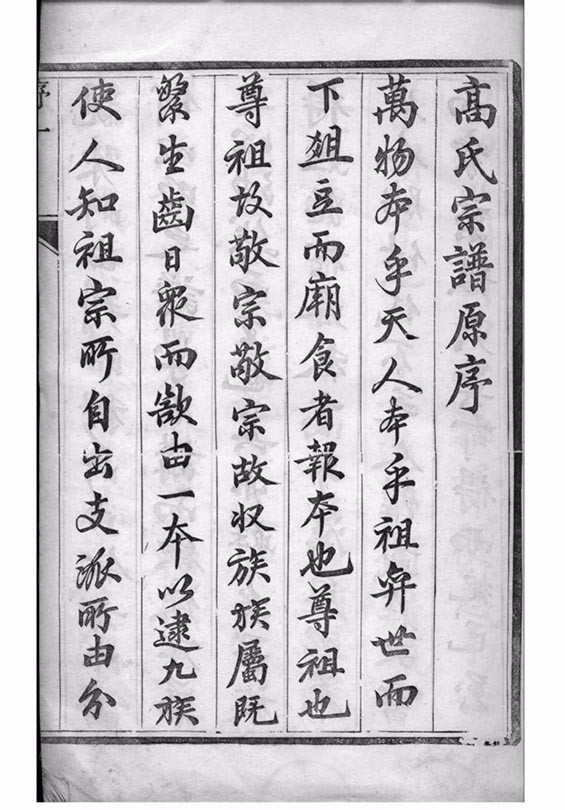 高氏宗譜原序
萬物本乎天人本乎祖弈世而
下俎豆而廟食者報本也尊祖也
尊祖故敬宗敬宗故収族族屬既
繁生齒日衆而欲由一本以逮九族
使人知祖宗所自出支派所由分
序一